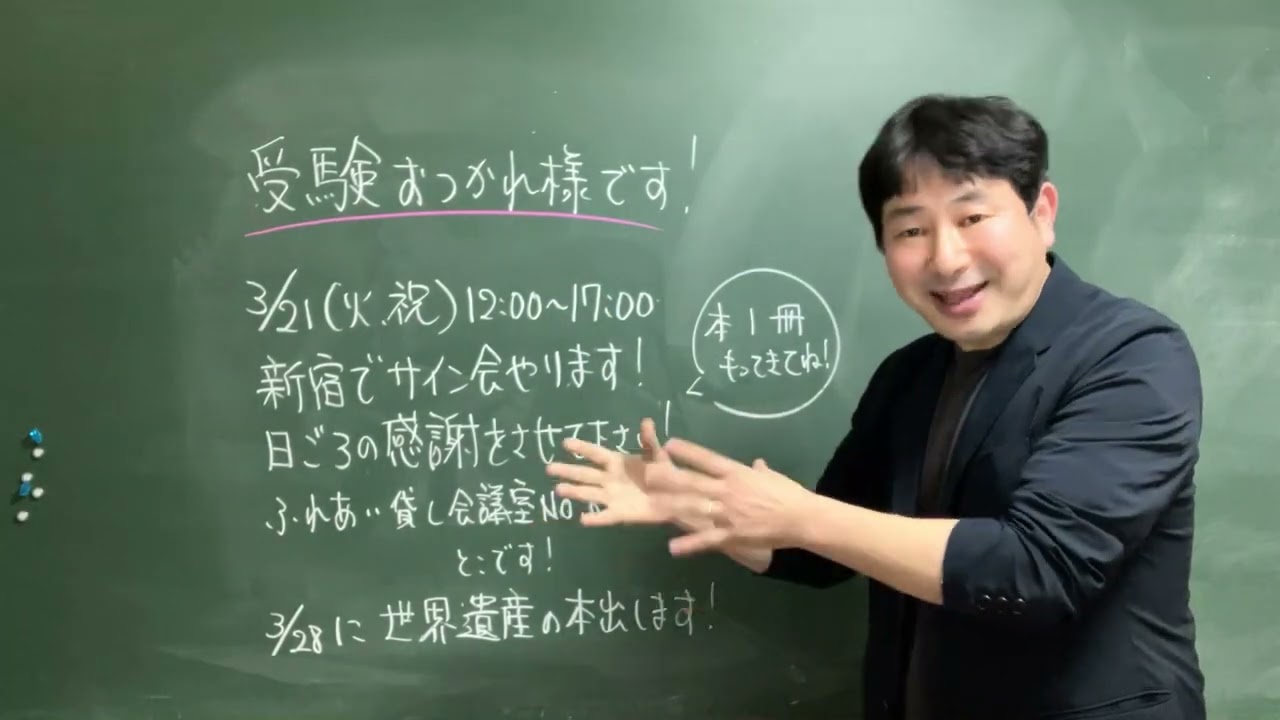 受験おつかれ様です!
3/21(火、祝)12:00~17:00
新宿でサイン会やります!
本1冊
もってきてね!
日ごろの感謝をさせて下さい!
ふれあい貸し会議室No
とこです!
3/28に世界遺産の本出します!